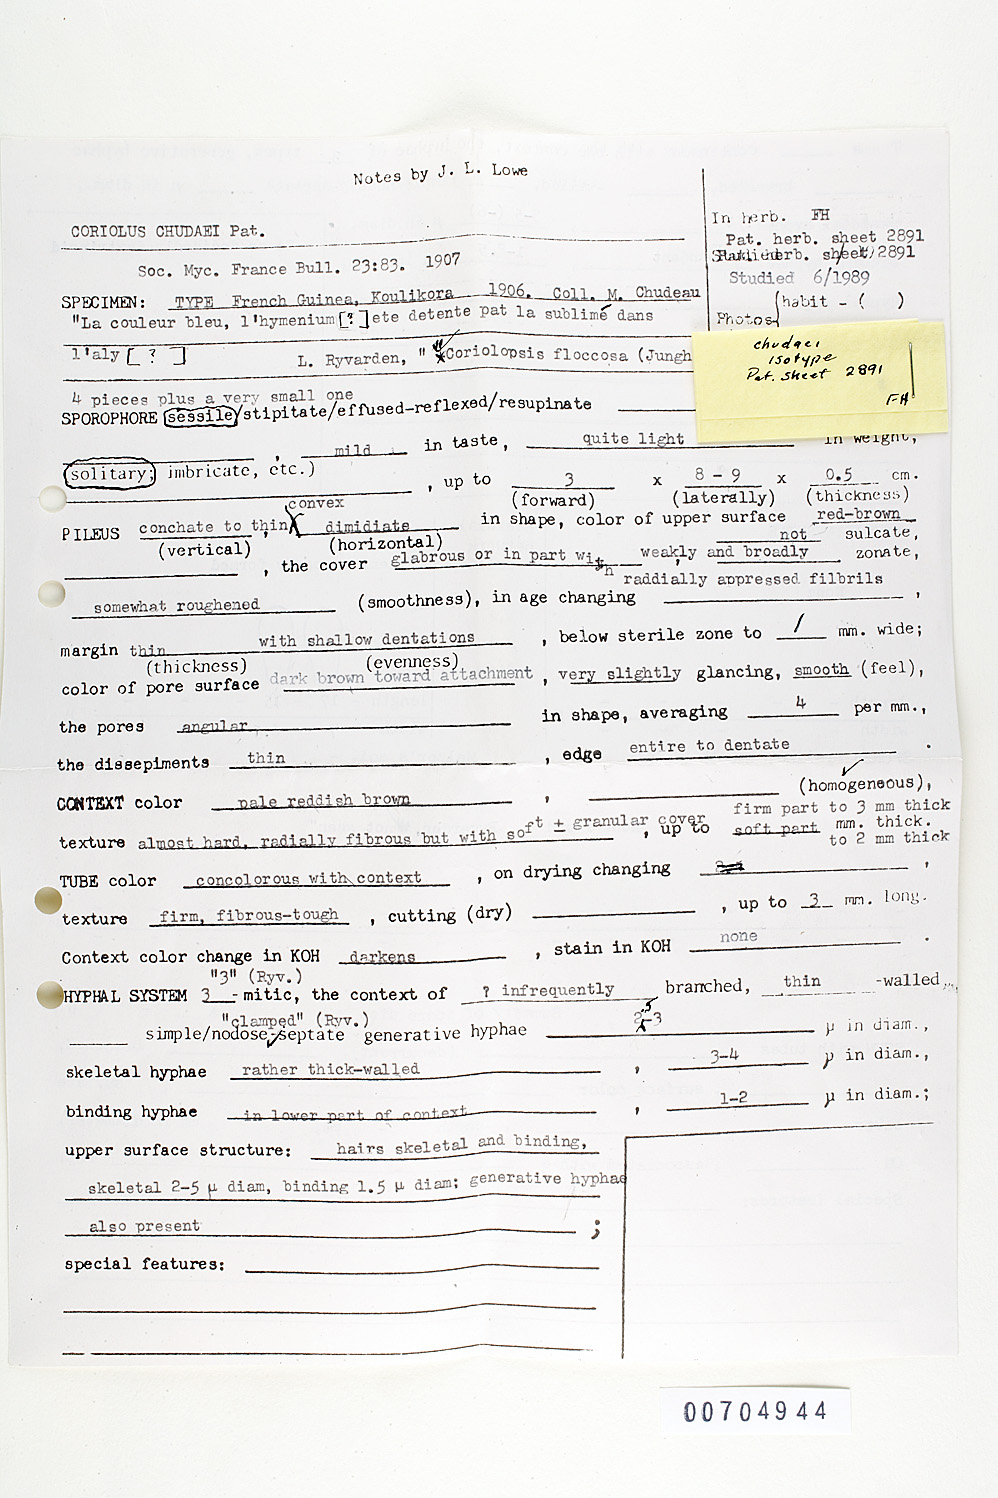 Notes by J. L. Lowe
In herb. FH
CORIOLUS CHUDAEI Pat.
Pat. herb. sheet 2891
Soc. Myc. France Bull. 23:83. 1907
Studied 6/1989
SPECIMEN: TYPE French Guinea, Koulikora 1906. Coll. M. Chudeau
habit - ( )
"La couleur bleu, l'hymenium [?] ete detente pat la sublimé dans
Photos
l'aly [ ? ] L. Ryvarden, " Coriolopsis floccosa (Jungh
chudaei
isotype
Pat. sheet 2891
FH
4 pieces plus a very small one
SPOROPHORE sessile/stipitate/effused-reflexed/resupinate
, mild in taste, quite light in weight,
solitary; imbricate, etc.)
, up to 3 x 8 - 9 x 0.5 cm.
(forward) (laterally) (thickness)
convex
PILEUS conchate to thin, dimidiate in shape, color of upper surface red-brown
(vertical) (horizontal) not sulcate,
, the cover glabrous or in part with weakly and broadly zonate,
raddially appressed filbrils
somewhat roughened (smoothness), in age changing ,
margin thin with shallow dentations , below sterile zone to / mm. wide;
(thickness) (evenness)
color of pore surface dark brown toward attachment , very slightly glancing, smooth (feel),
the pores angular in shape, averaging 4 per mm.,
the dissepiments thin , edge entire to dentate .
CONTEXT color pale reddish brown , (homogeneous),
firm part to 3 mm thick
texture almost hard, radially fibrous but with soft ± granular cover , up to soft part mm. thick.
to 2 mm thick
TUBE color concolorous with context , on drying changing ,
texture firm, fibrous-tough , cutting (dry) , up to 3 mm. long.
Context color change in KOH darkens , stain in KOH none .
"3" (Ryv.)
HYPHAL SYSTEM 3 -mitic, the context of ? infrequently branched, thin -walled,
"clamped" (Ryv.)
simple/nodose-septate generative hyphae 2.5-3 µ in diam.,
skeletal hyphae rather thick-walled , 3-4 µ in diam.,
binding hyphae in lower part of context , 1-2 µ in diam.;
upper surface structure: hairs skeletal and binding,
skeletal 2-5 µ diam, binding 1.5 µ diam; generative hyphae
also present ;
special features:
00704944